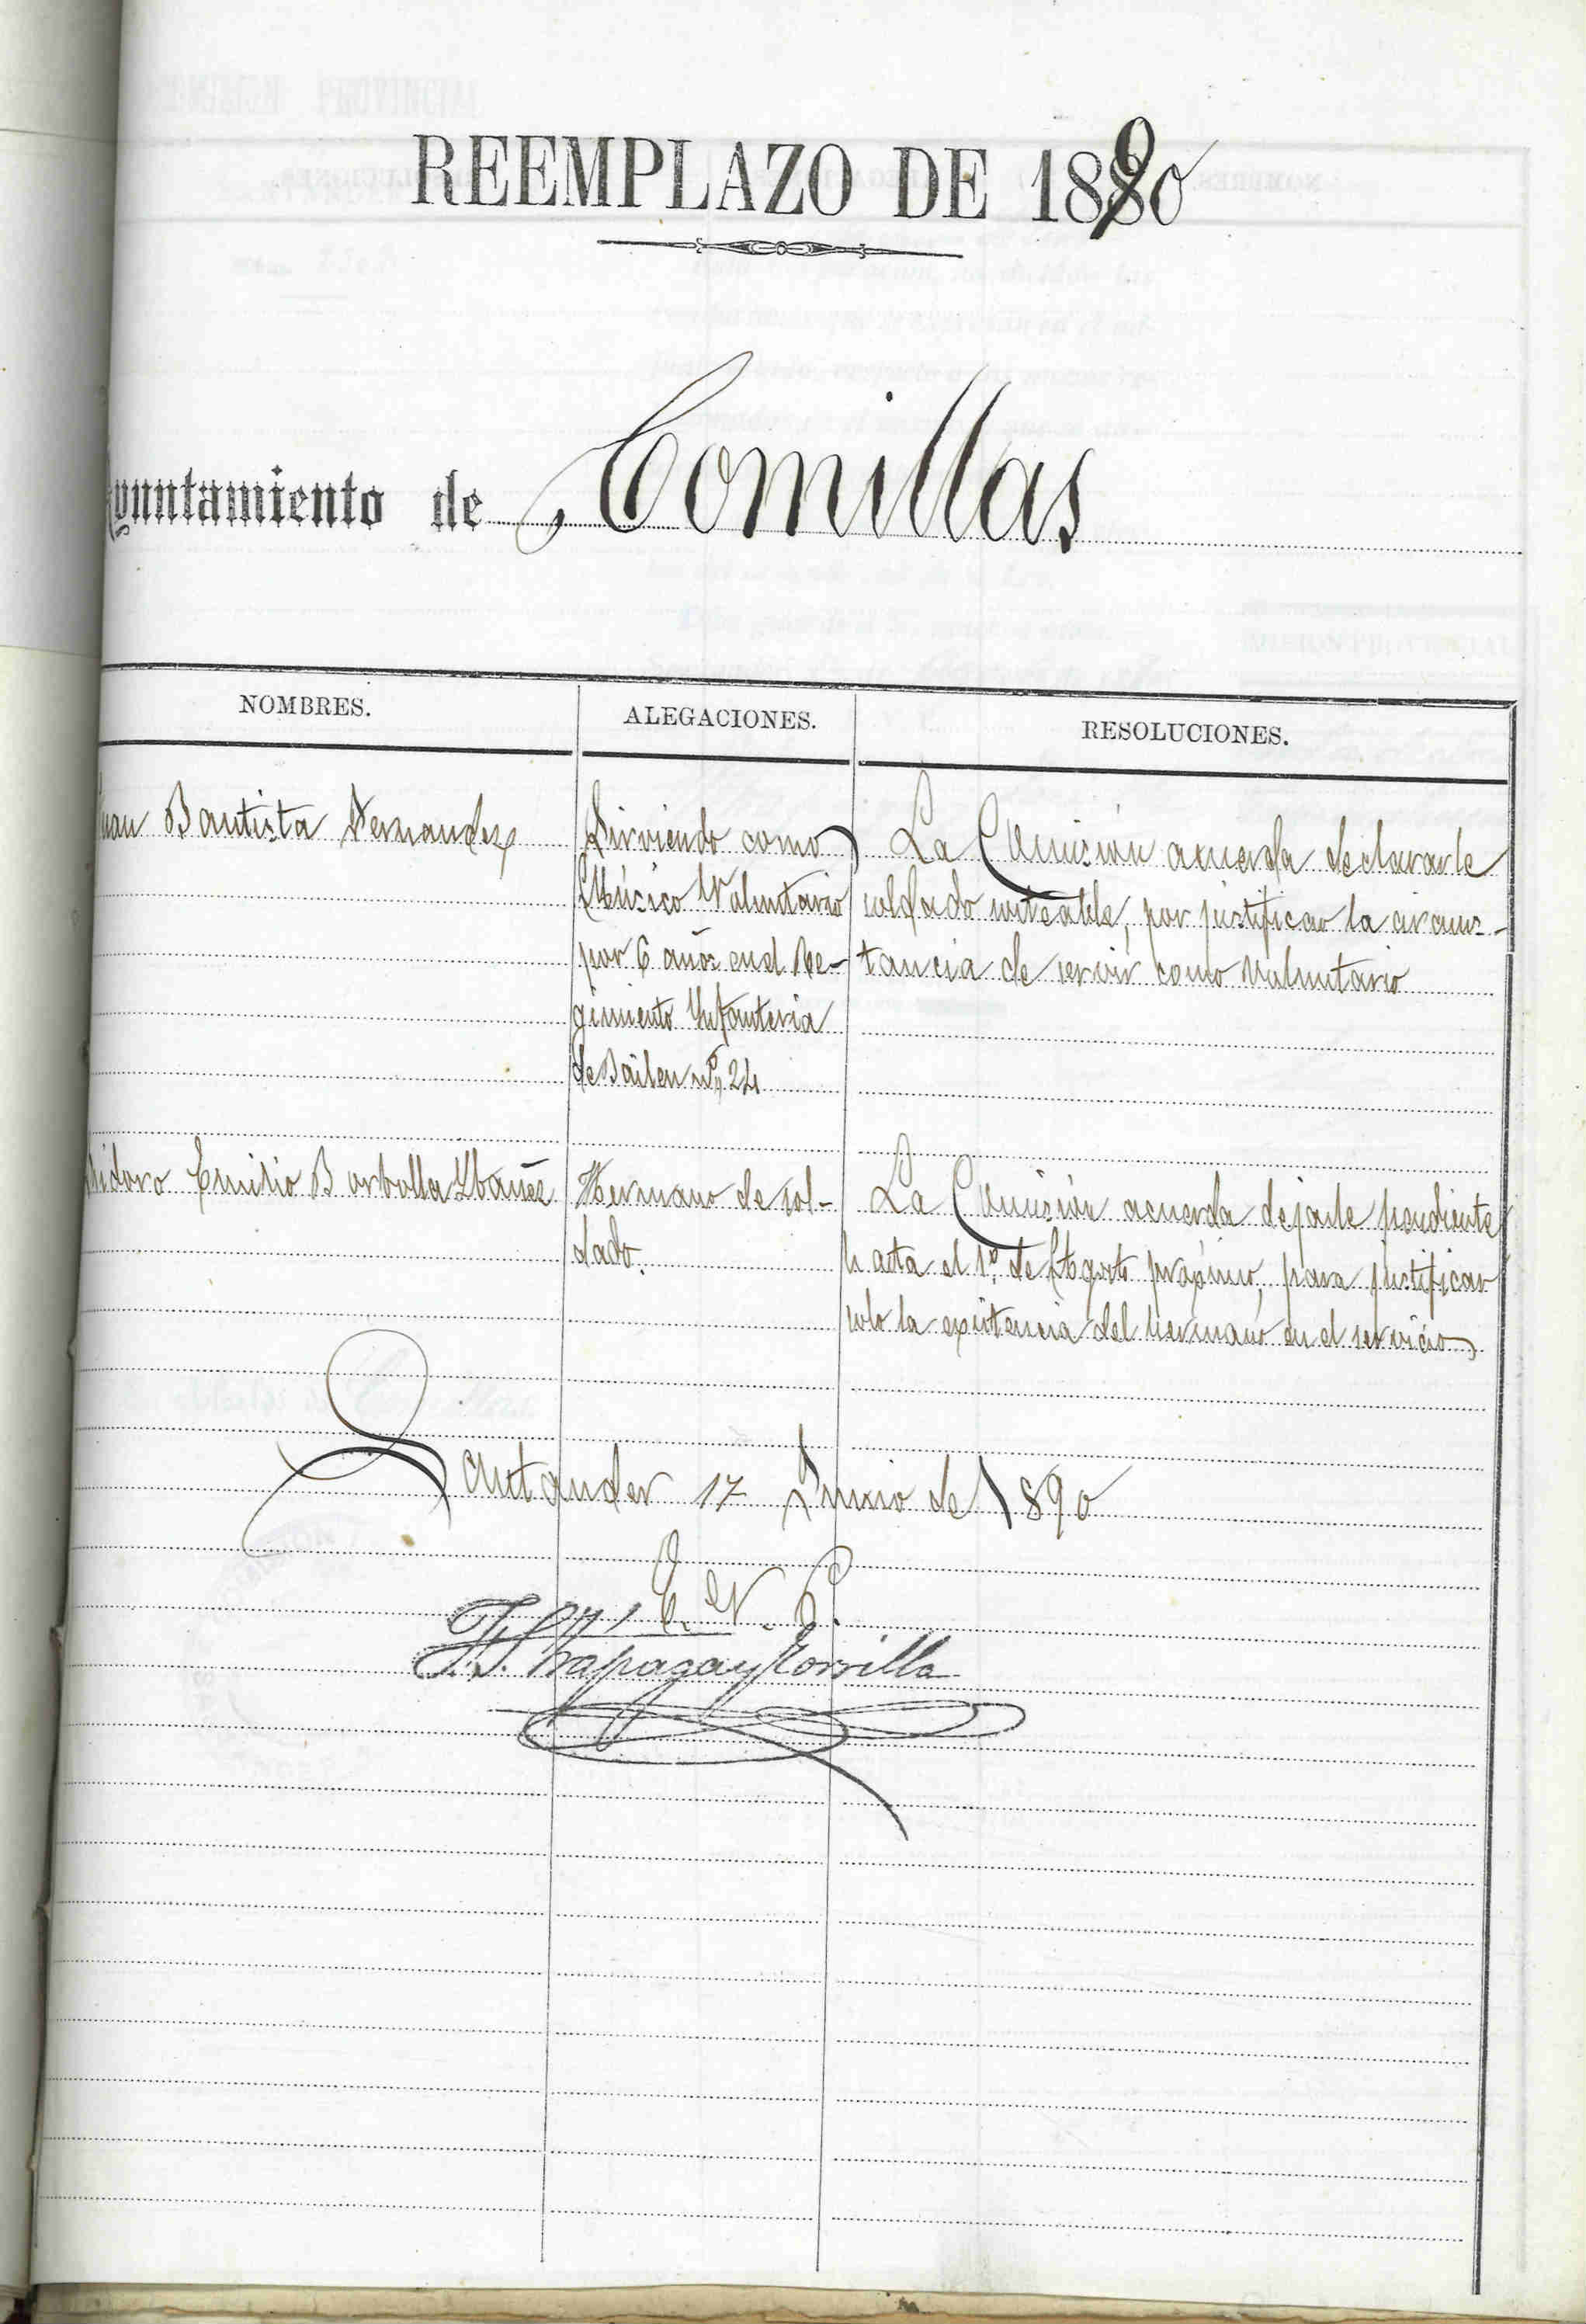 REEMPLAZO DE 1890
Ayuntamiento de Comillas
NOMBRES. ALEGACIONES. RESOLUCIONES.
Juan Bautista Fernandez
Sirviendo como
Músico Voluntario
por 6 años en el Re-
gimiento Infanteria
de Bailen nº 24
La Comisión acuerda declararle
soldado sorteable, por justificar la circuns-
tancia de servir como voluntario
Isidoro Emilio Borbolla Ybañez
Hermano de sol-
dado.
La Comisión acuerda dejarle pendiente
hasta el 1º de Agosto próximo, para justificar
solo la existencia del hermano en el servicio
Santander 17 Junio de 1890
E. V. P.